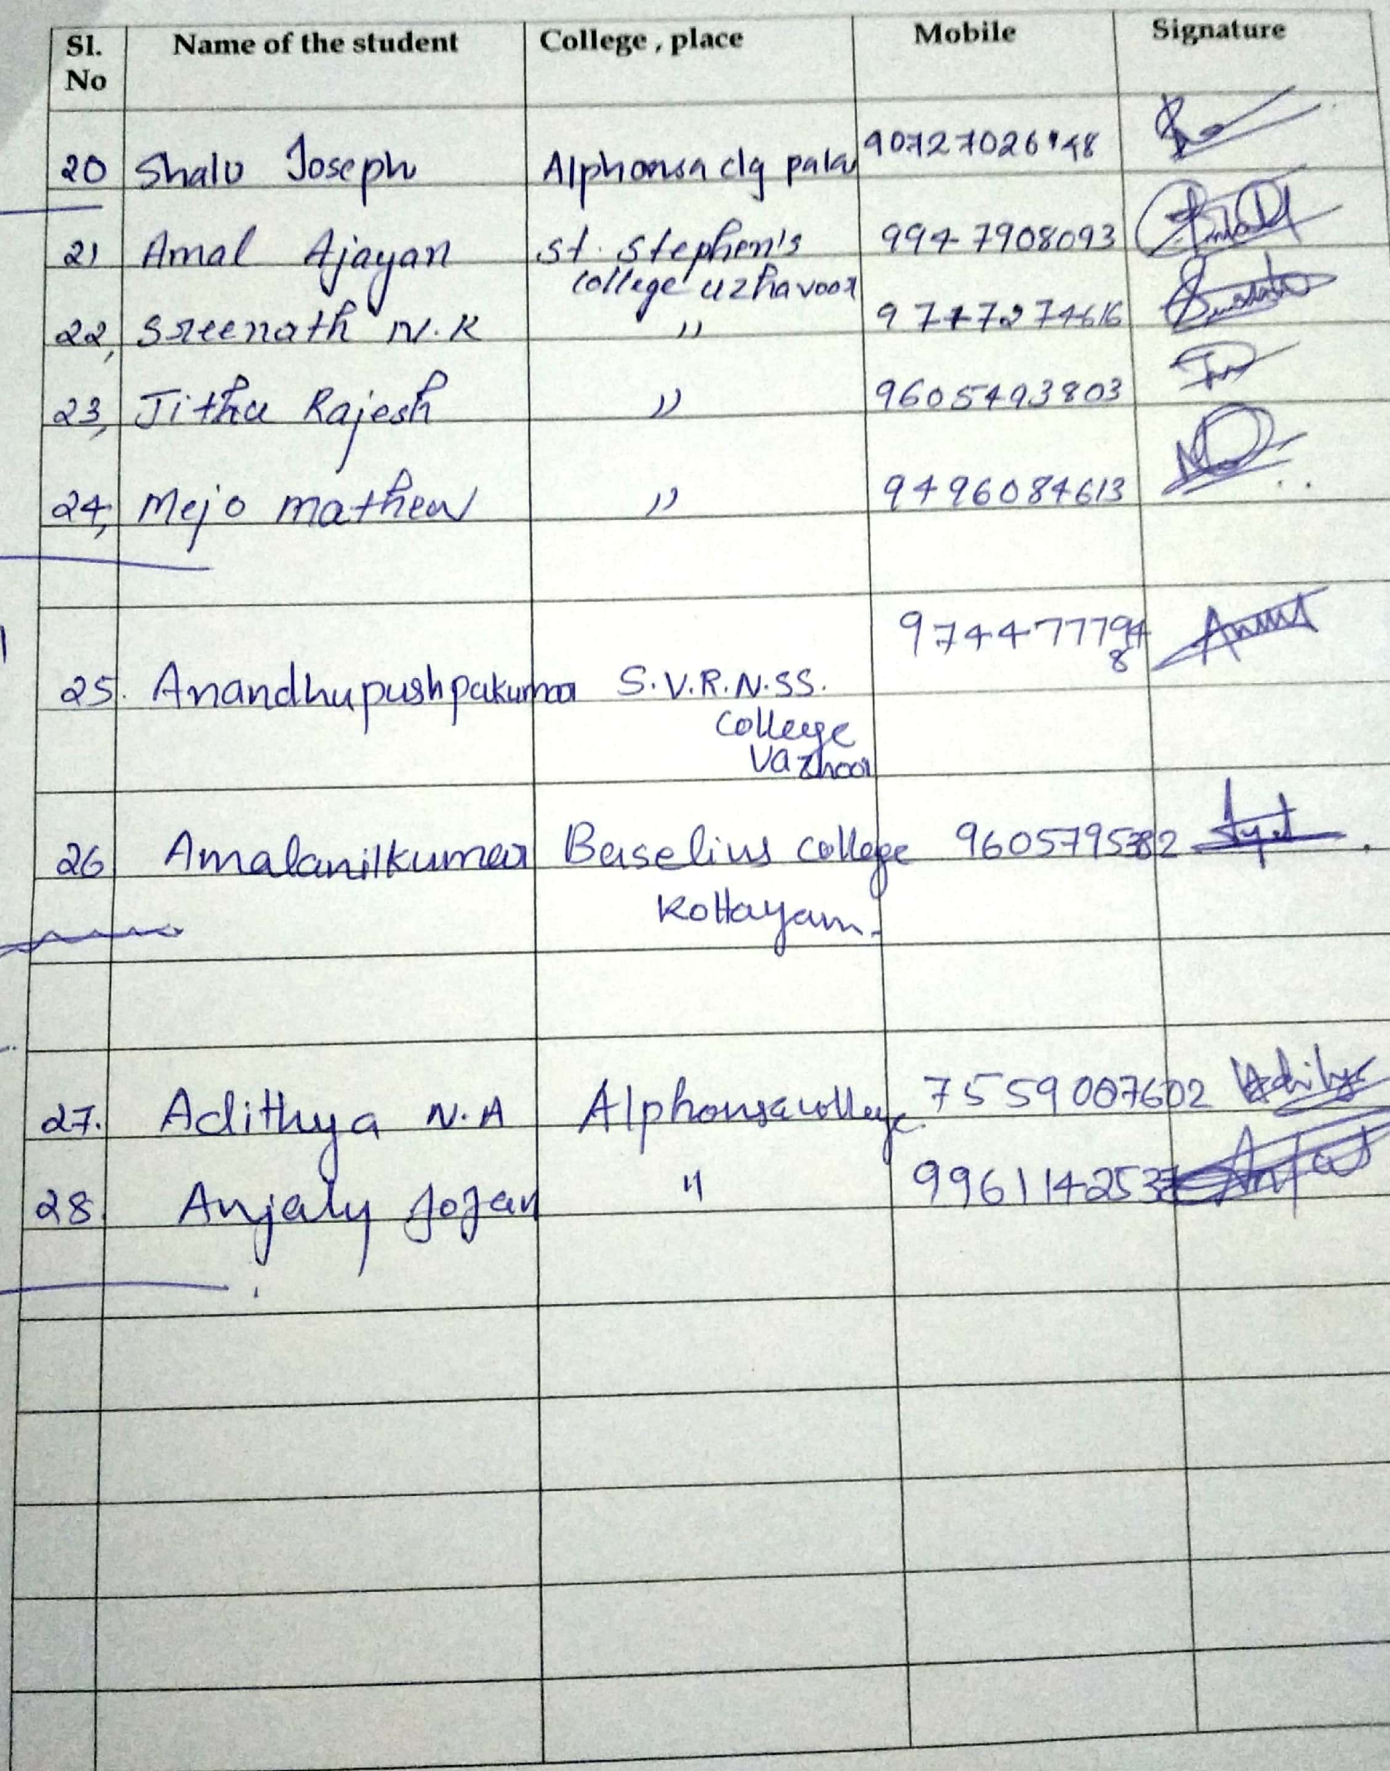 Sl. No Name of the student College , place Mobile Signature
20 Shalu Joseph Alphonsa clg pala
21 Amal Ajayan St. Stephen's 9947908093
college uzhavoor
22, Sreenath N.K 〃
23, Jithu Rajesh 〃 9605493803
24, Mejo mathew 〃 9496084613
25. Anandhupushpakumar S.V.R.N.SS.
College
Vazhoor
26 Amalanilkumar Baselius college
Kottayam.
27. Adithya N.A Alphonsa college 7559007602
28. Anjaly Jojan 〃